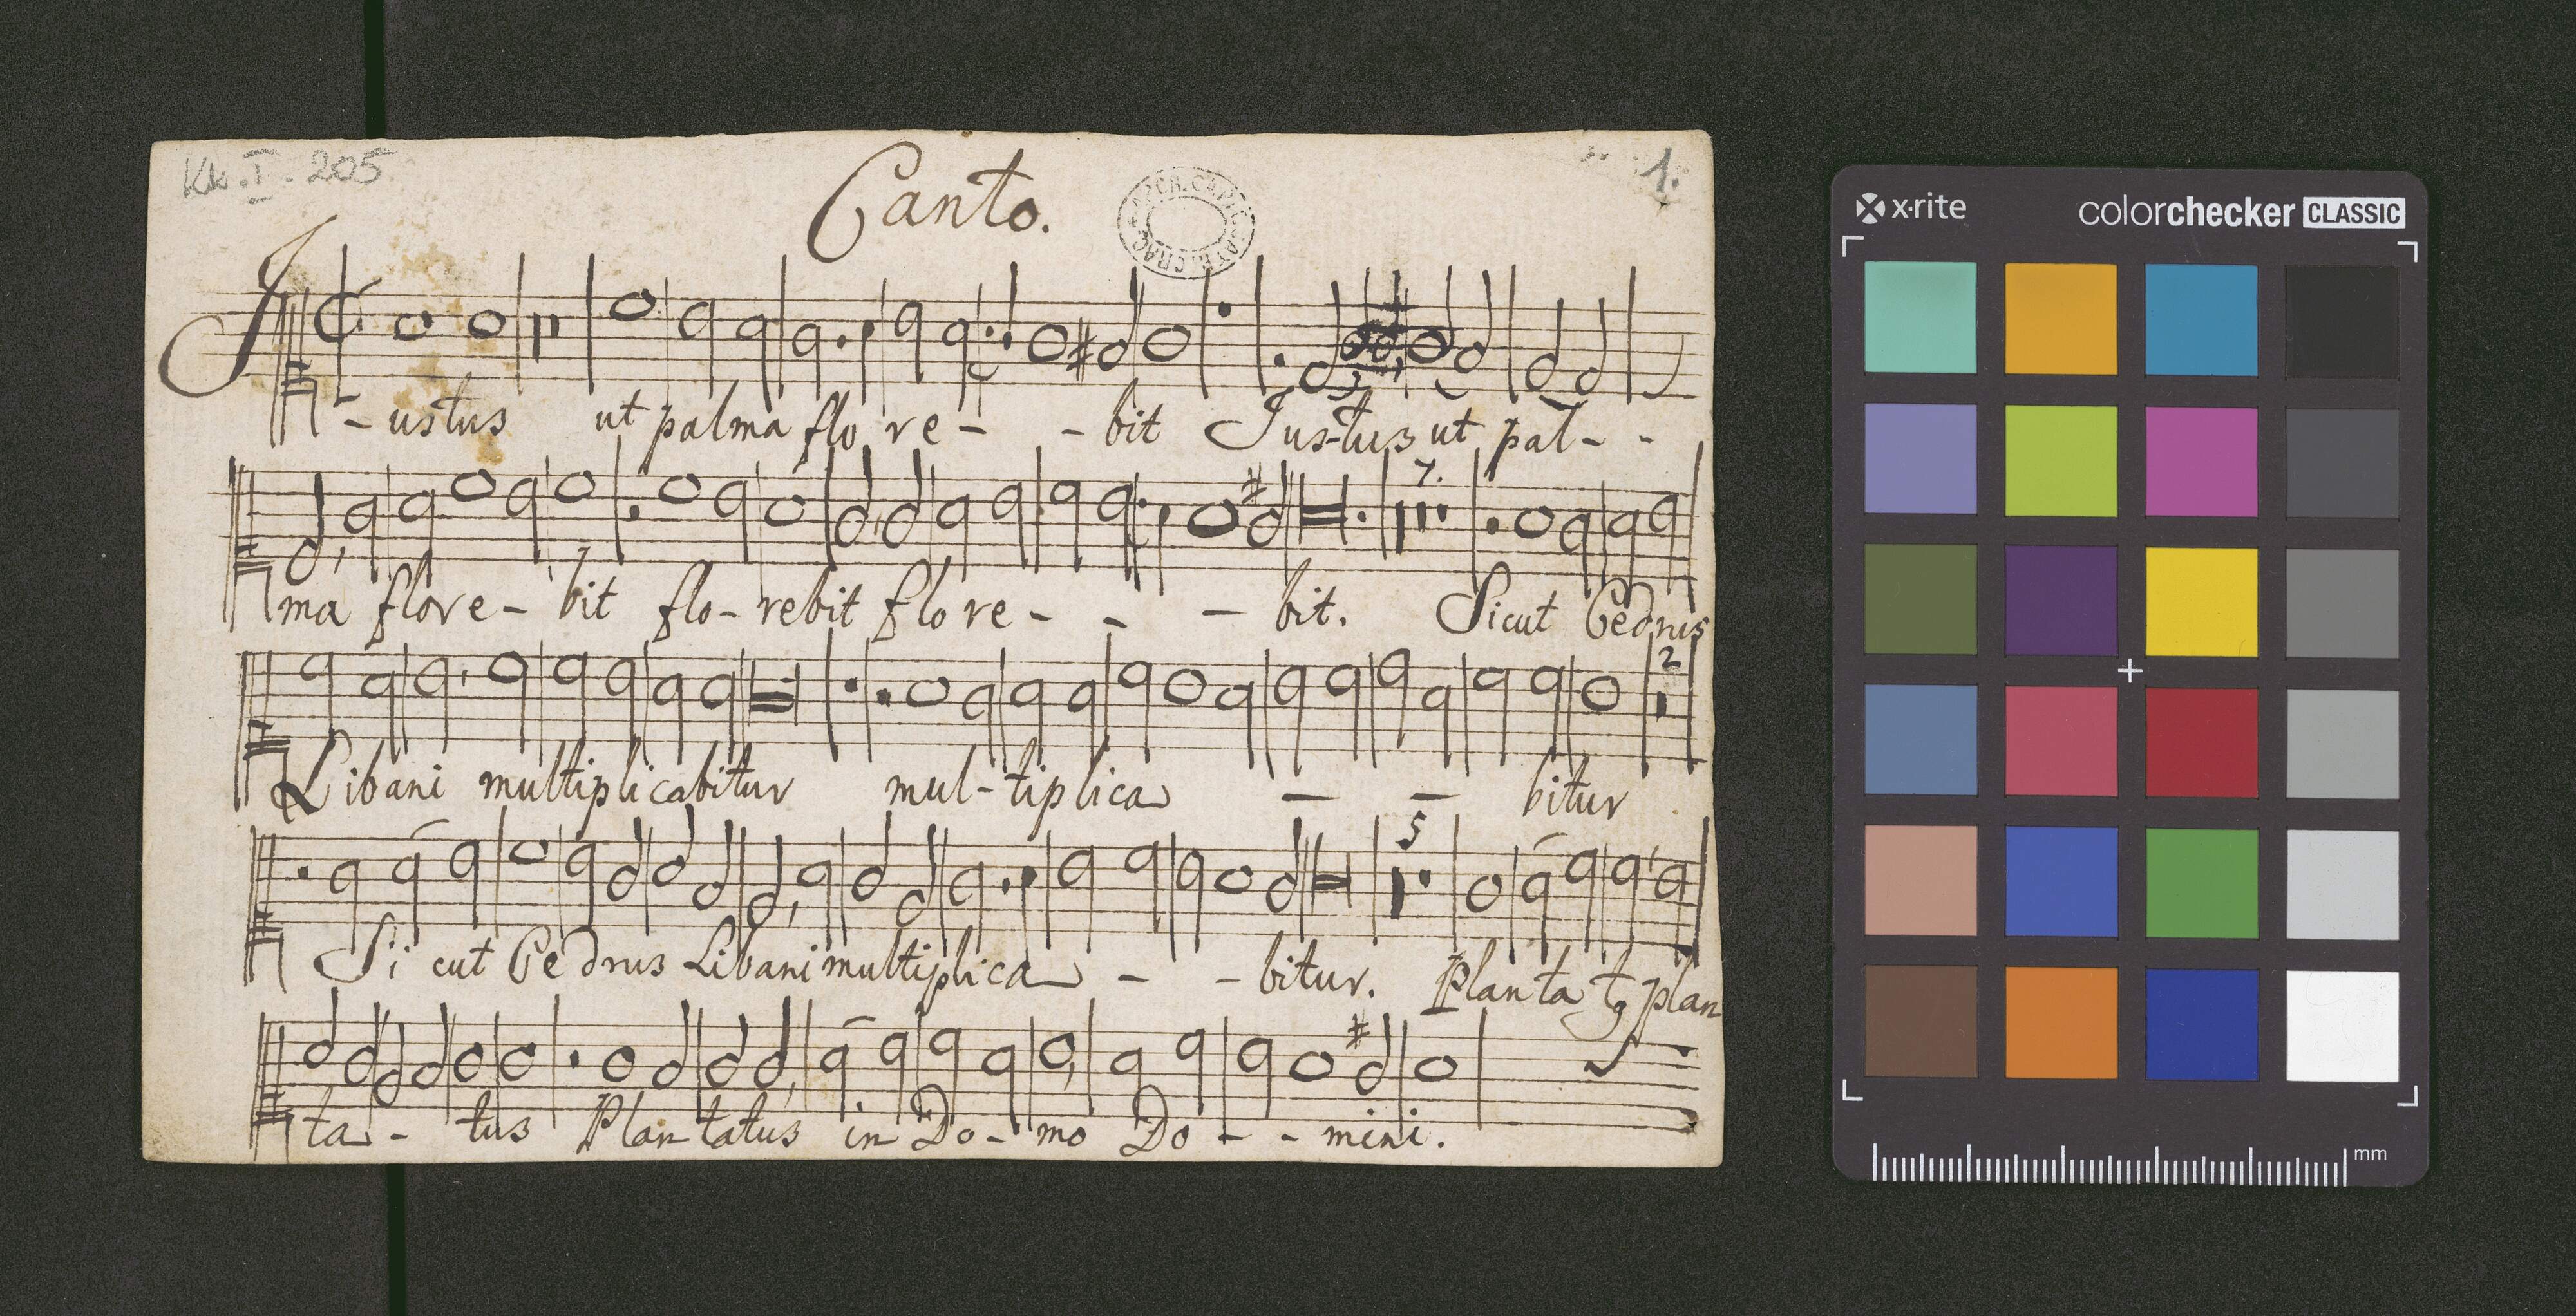 Kk. I. 205
1.
Canto.
J - ustus ut palma flo re - - bit Justus ut pal - -
7.
ma flore - bit flo - rebit flo re - - - bit. Sicut Cedrus
2
Libani multiplicabitur mul - tiplica - - bitur
5
Si cut Cedrus Libani multiplica - - bitur. Planta tq plan
ta - tus Plan tatus in Do - mo Do - - mini.
x·rite
colorchecker CLASSIC
mm